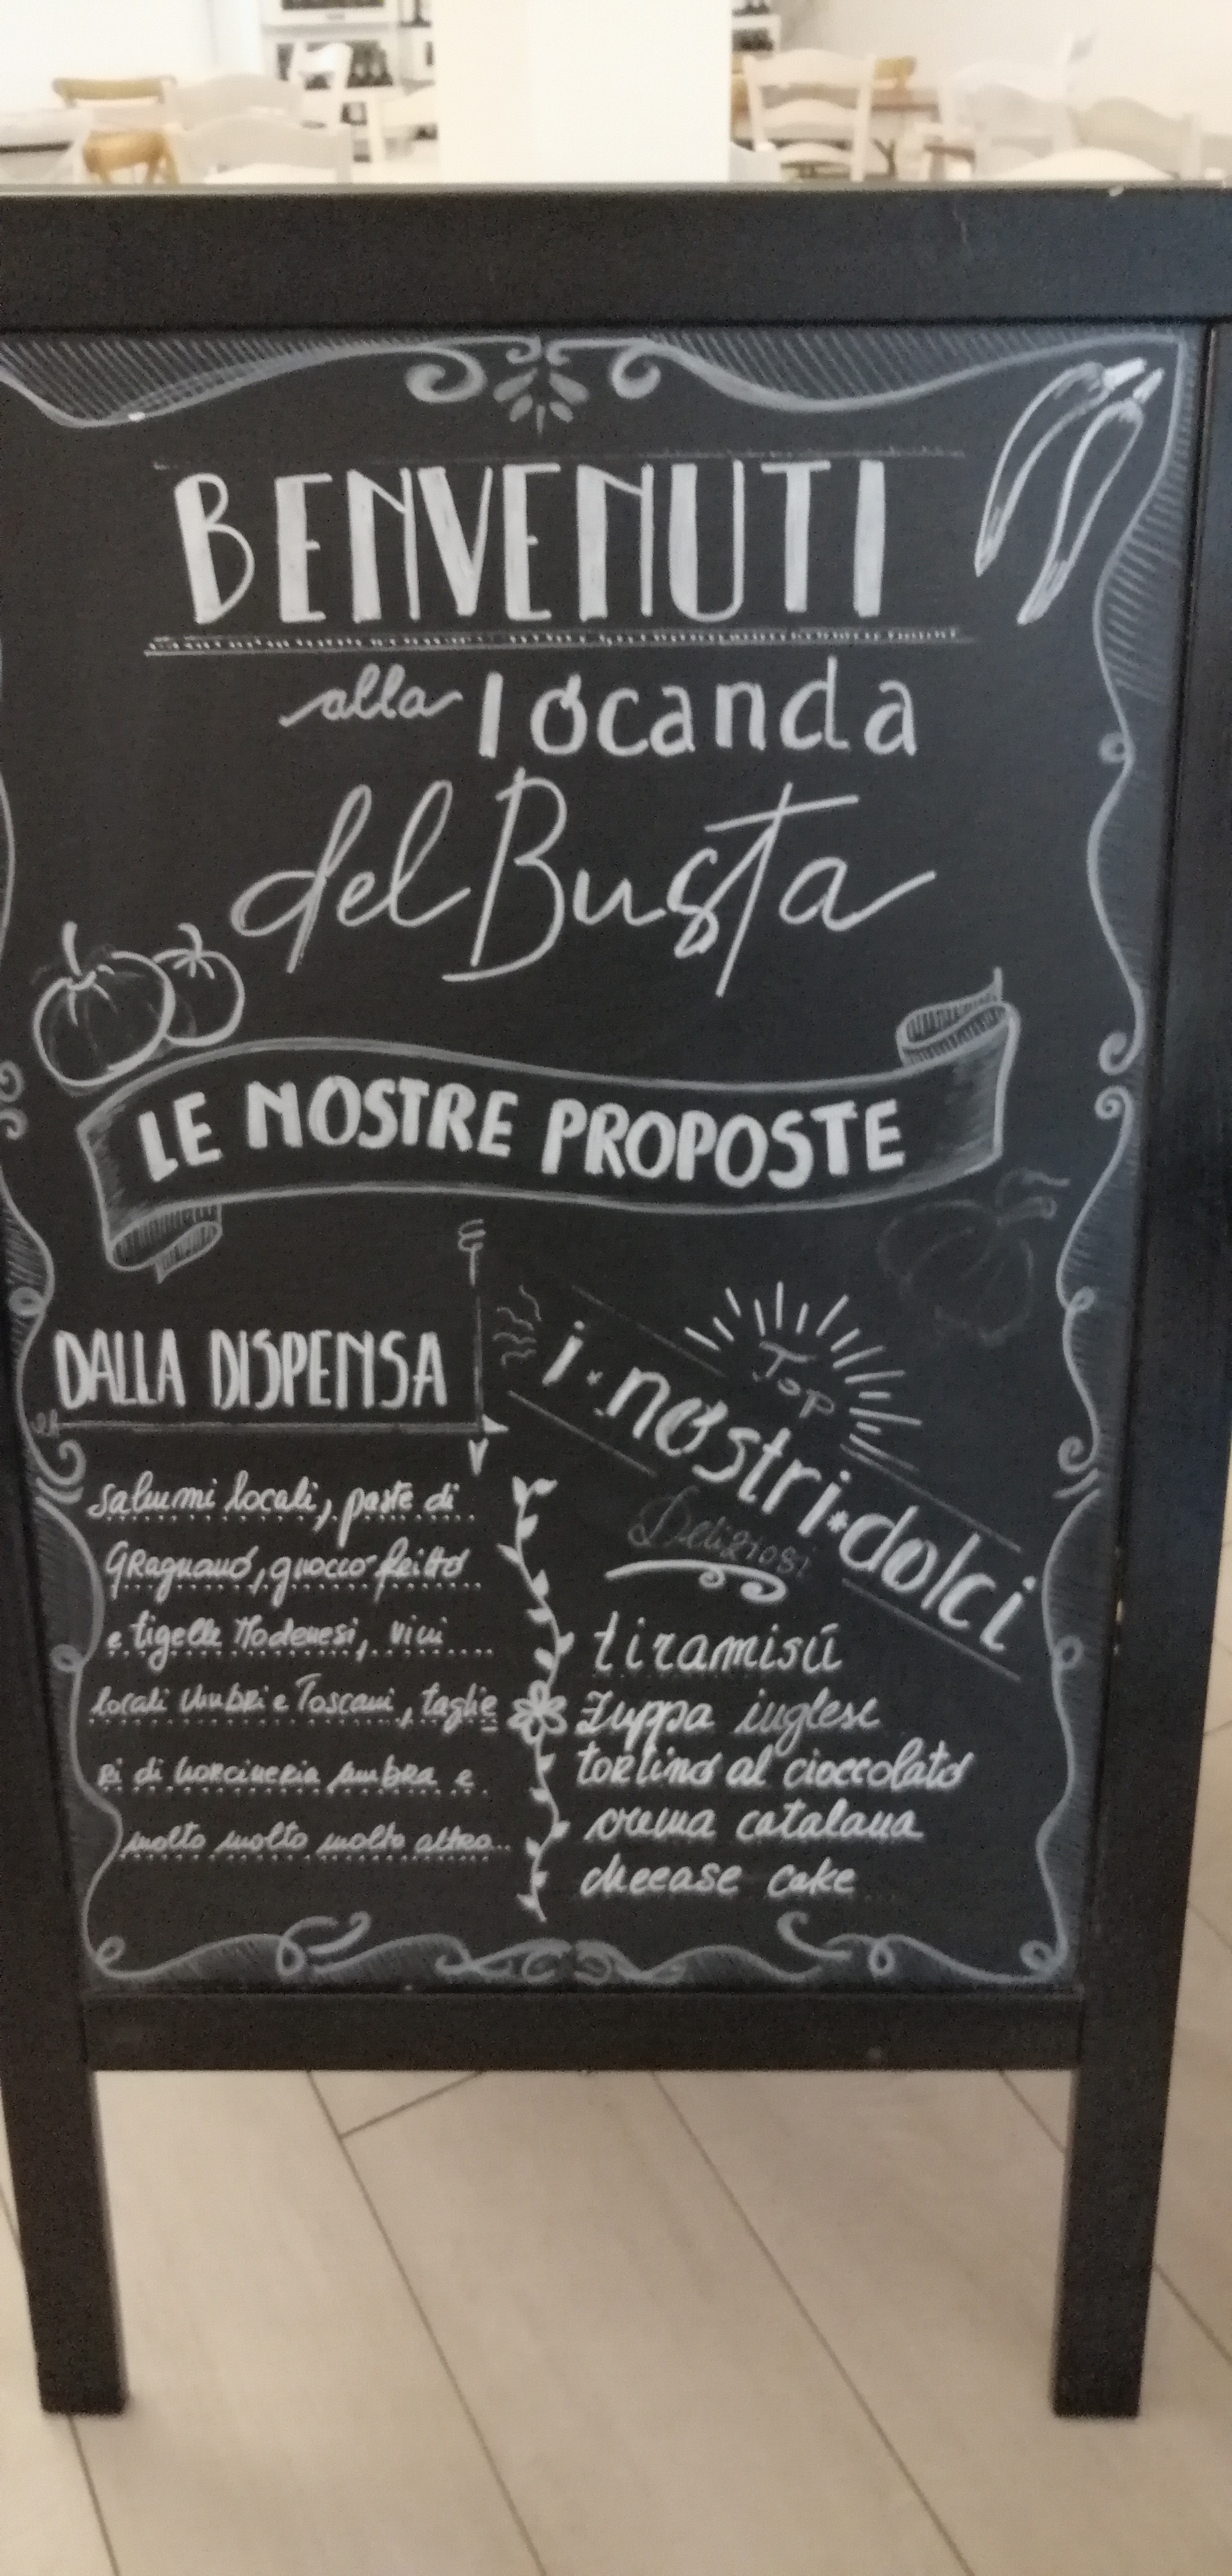 BENVENUTI
alla locanda
del Busta
LE NOSTRE PROPOSTE
DALLA DISPENSA
salumi locali, paste di
GRagnano, gnocco fritto
e tigelle Modenesi, vini
locali Umbri e Toscani, taglie
Ri di norcineria umbra e
molto molto molto altro...
Top
i nostri dolci
Deliziosi
tiramisù
Zuppa inglese
tortino al cioccolato
crema catalana
cheease cake